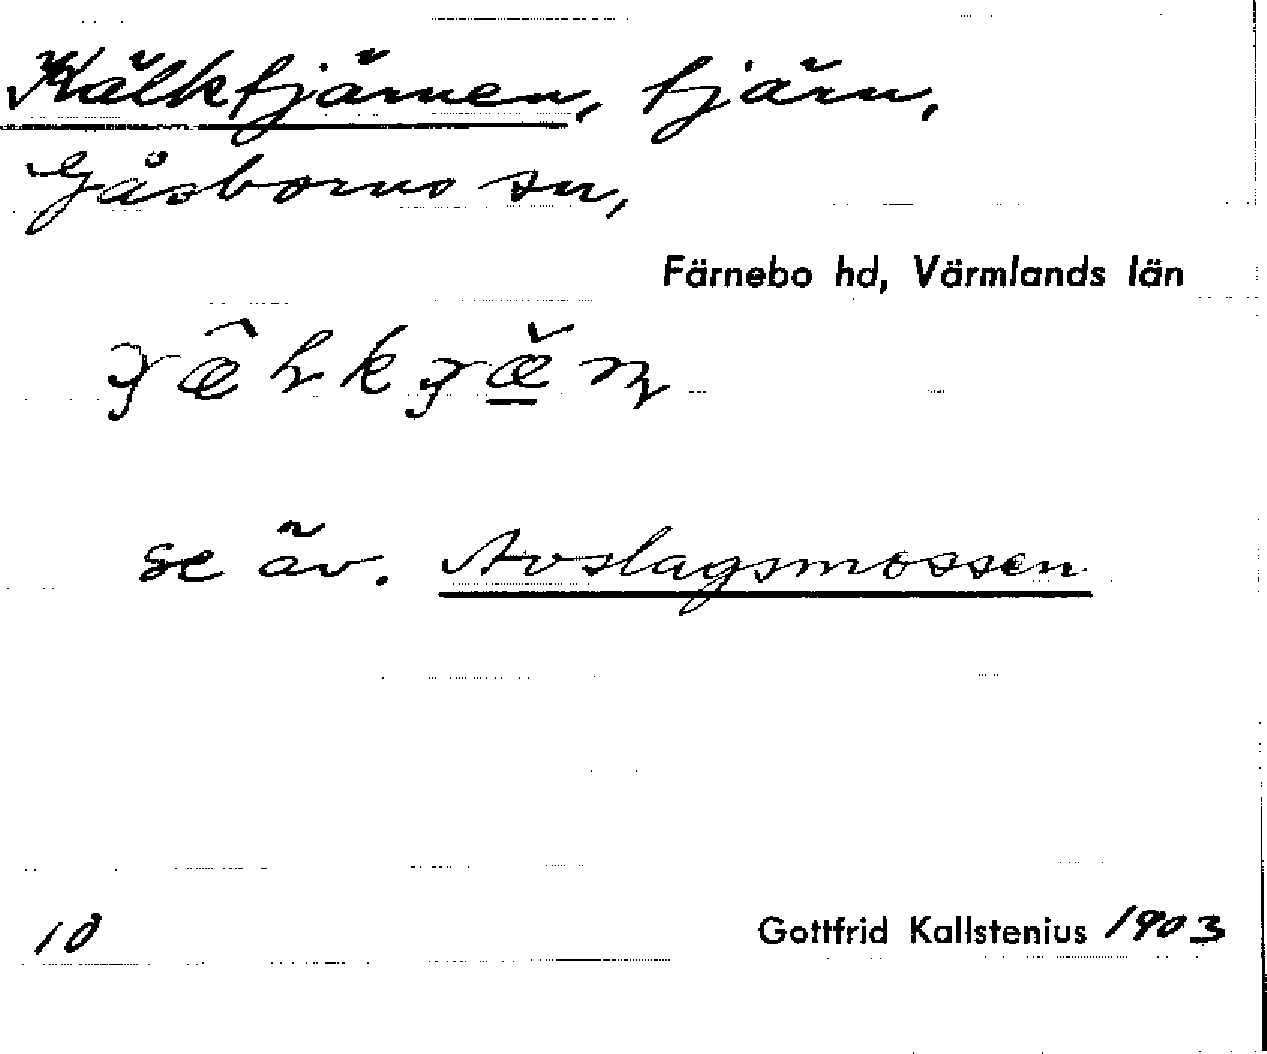 Kälktjärnen, tjärn,
Gåsborns sn,
Färnebo hd, Värmlands län
se äv. Avslagsmossen
10
Gottfrid Kallstenius 1903